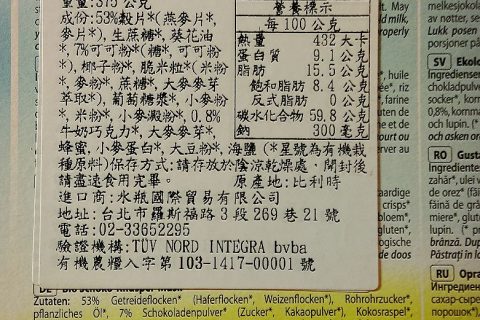 重量:375 公克
成份:53%穀片*(燕麥片*,小
麥片*),生蔗糖*,葵花油
*,7%可可粉*(糖*,可可粉
*),椰子粉*,脆米粒*(米粉
*,麥粉*,蔗糖*,大麥麥芽
萃取*),葡萄糖漿*,小麥粉
*,米粉*,小麥澱粉*,0.8%
牛奶巧克力*,大麥麥芽*,
蜂蜜,小麥蛋白*,大豆粉*,海鹽(*星號為有機栽
種原料)保存方式:請存放於陰涼乾燥處、開封後
請盡速食用完畢。 原產地:比利時
進口商:水瓶國際貿易有限公司
地址:台北市羅斯福路3段269巷21號
電話:02-33652295
驗證機構:TÜV NORD INTEGRA bvba
有機農糧入字第103-1417-00001號
營養標示
每100公克
熱量 432 大卡
蛋白質 9.1 公克
脂肪 15.5 公克
飽和脂肪 8.4 公克
反式脂肪 0 公克
碳水化合物 59.8 公克
鈉 300 毫克
Zutaten: 53% Getreideflocken* (Haferflocken*, Weizenflocken*), Rohrohrzucker*,
pflanzliches Öl*, 7% Schokoladenpulver* (Zucker*, Kakaopulver*), Kokosraspel*,
melkesjokolad
av nøtter, se
Lukk posen
porsjoner på
SV Ekolo
Ingredienser
chokladpulve
socker*, korn
0,8%, komma
og lupin. (*
och asken oro
RO Gusta
Ingrediente:
zahăr*, ulei v
crispy* de ore
făină de grâ
miere*, glute
lupin. (* din
brânză. Dup
Păstrați în lo
RU Opra
Ингредиен
сахар-сырец
порошок*),